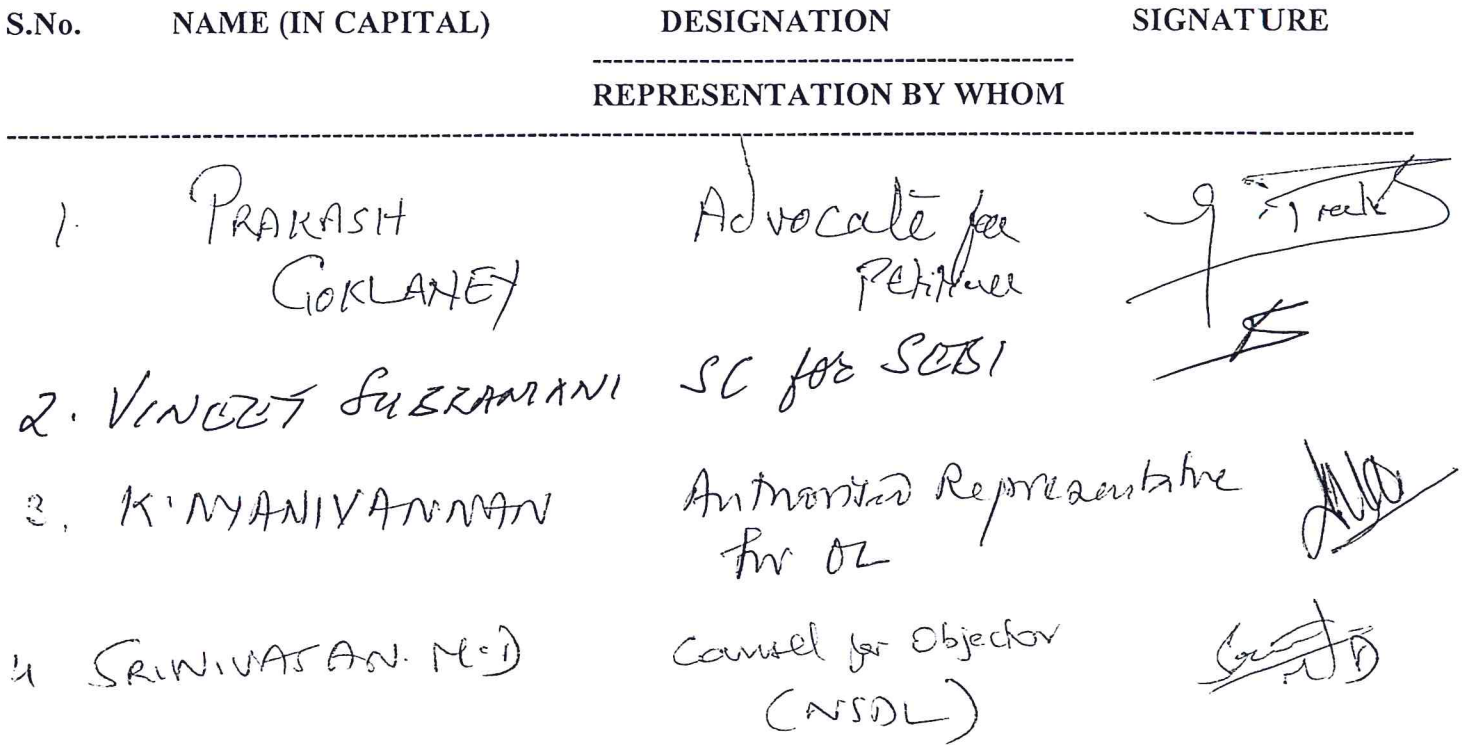 S.No. NAME (IN CAPITAL) DESIGNATION SIGNATURE
REPRESENTATION BY WHOM
1. PRAKASH Advocate for
GOKLANEY Petitioner
2. VINEET SUBRAMANI SC for SEBI
3. K. NYANIVANNAN Authorised Representative
for OL
4 SRINIVASAN. M.D Counsel for Objector
(NSDL)